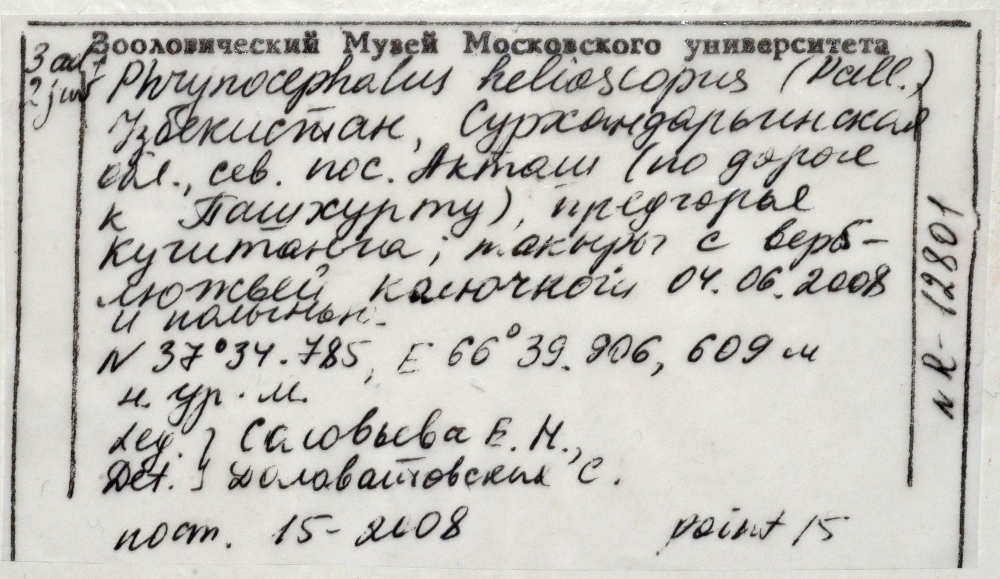 Зоологический Музей Московского университета
3 ad +
2 juv
Phrynocephalus helioscopus (Pall.)
Узбекистан, Сурхандарьинская
обл., сев. пос. Акташ (по дороге
к Пашхурту), предгорья
Кугитанга; такыры с верб-
люжьей колючкой 04.06.2008
и полынью.
N 37°34.785, E 66°39.906, 609 м
н. ур. м.
Leg. } Соловьева Е. Н.,
Det. } Доловатовских С.
пост. 15-2008 point 15
N R-12801